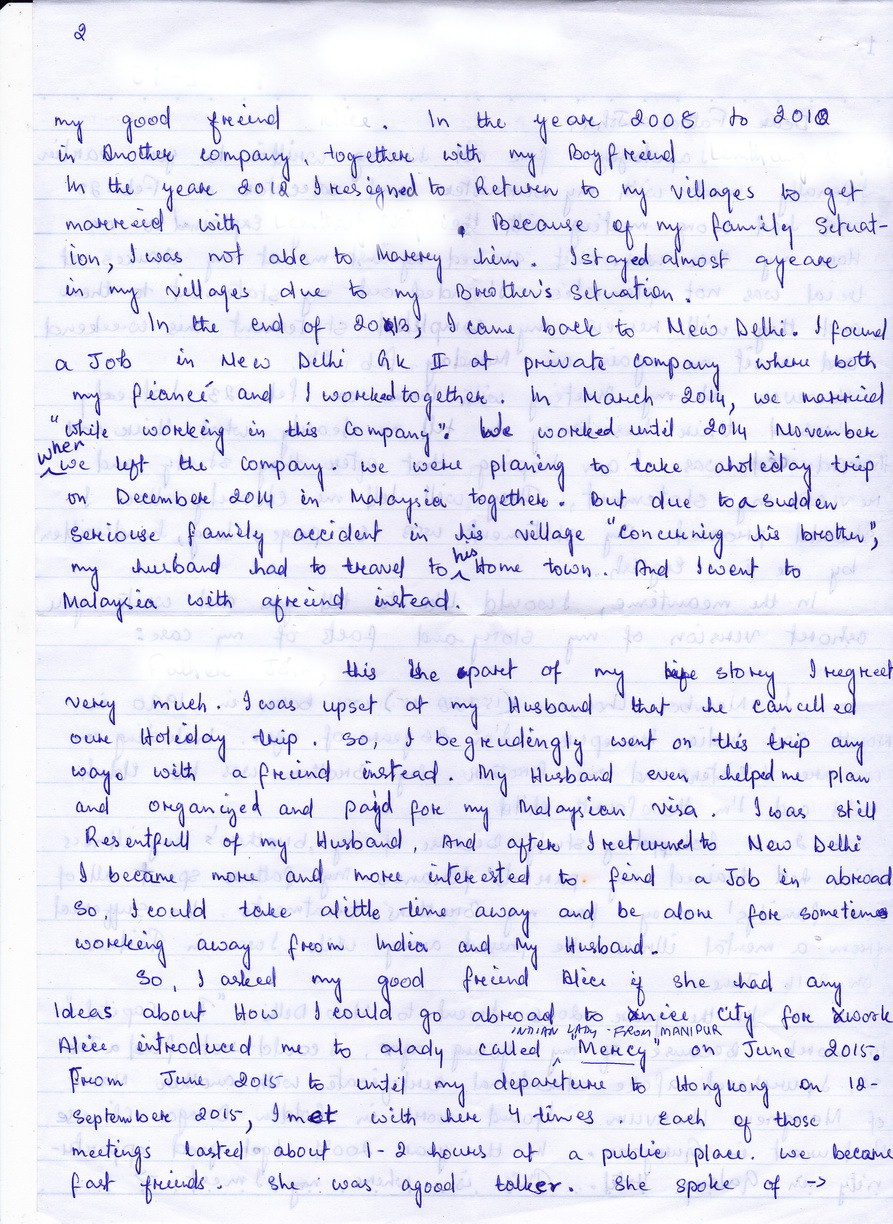 2
my good freind . In the year 2008 to 2012
in Another company, together with my Boyfreind
In the year 2012 I resigned to Return to my villages to get
marreid with . Because of my family Situat-
ion, I was not able to Marrey him. I stayed almost ayeare
in my villages due to my Brother's Setuation.
In the end of 2013, I came back to New Delhi. I found
a Job in New Delhi GK II at private company where both
my fiancé and I worked together. In March 2014, we marreid
"while working in this Company". We worked until 2014 November
when we left the company. we were planing to take aholeday trip
on December 2014 in Malaysia together. But due to a sudden
Seriouse family accident in his village "Concerning his brother",
my husband had to travel to his Home town. And I went to
Malaysia with afreind instead.
this the part of my life storey I regreet
verey much. I was upset at my Husband that he cancelled
oure Holeday trip. So, I begrudengly went on this trip any
way. with a freind instead. My Husband even helped me plan
and organized and payd for my Malaysian visa. I was still
Resentfull of my Husband, And after I returned to New Delhi
I became more and more interested to find a Job in abroad
So, I could take alittle time away and be alone fore sometimes
woreking away from India and My Husband.
So, I asked my good freind Alice if she had any
Ideas about How I could go abroad to anice City for work
Alice introduced me to alady called INDIAN LADY - FROM MANIPUR "Mercy" on June 2015.
From June 2015 to until my departure to Hongkong on 12-
September 2015, I met with here 4 times. Each of those
meetings lasted about 1-2 hours at a public place. we became
fast friends. She was agood talker. She spoke of ->